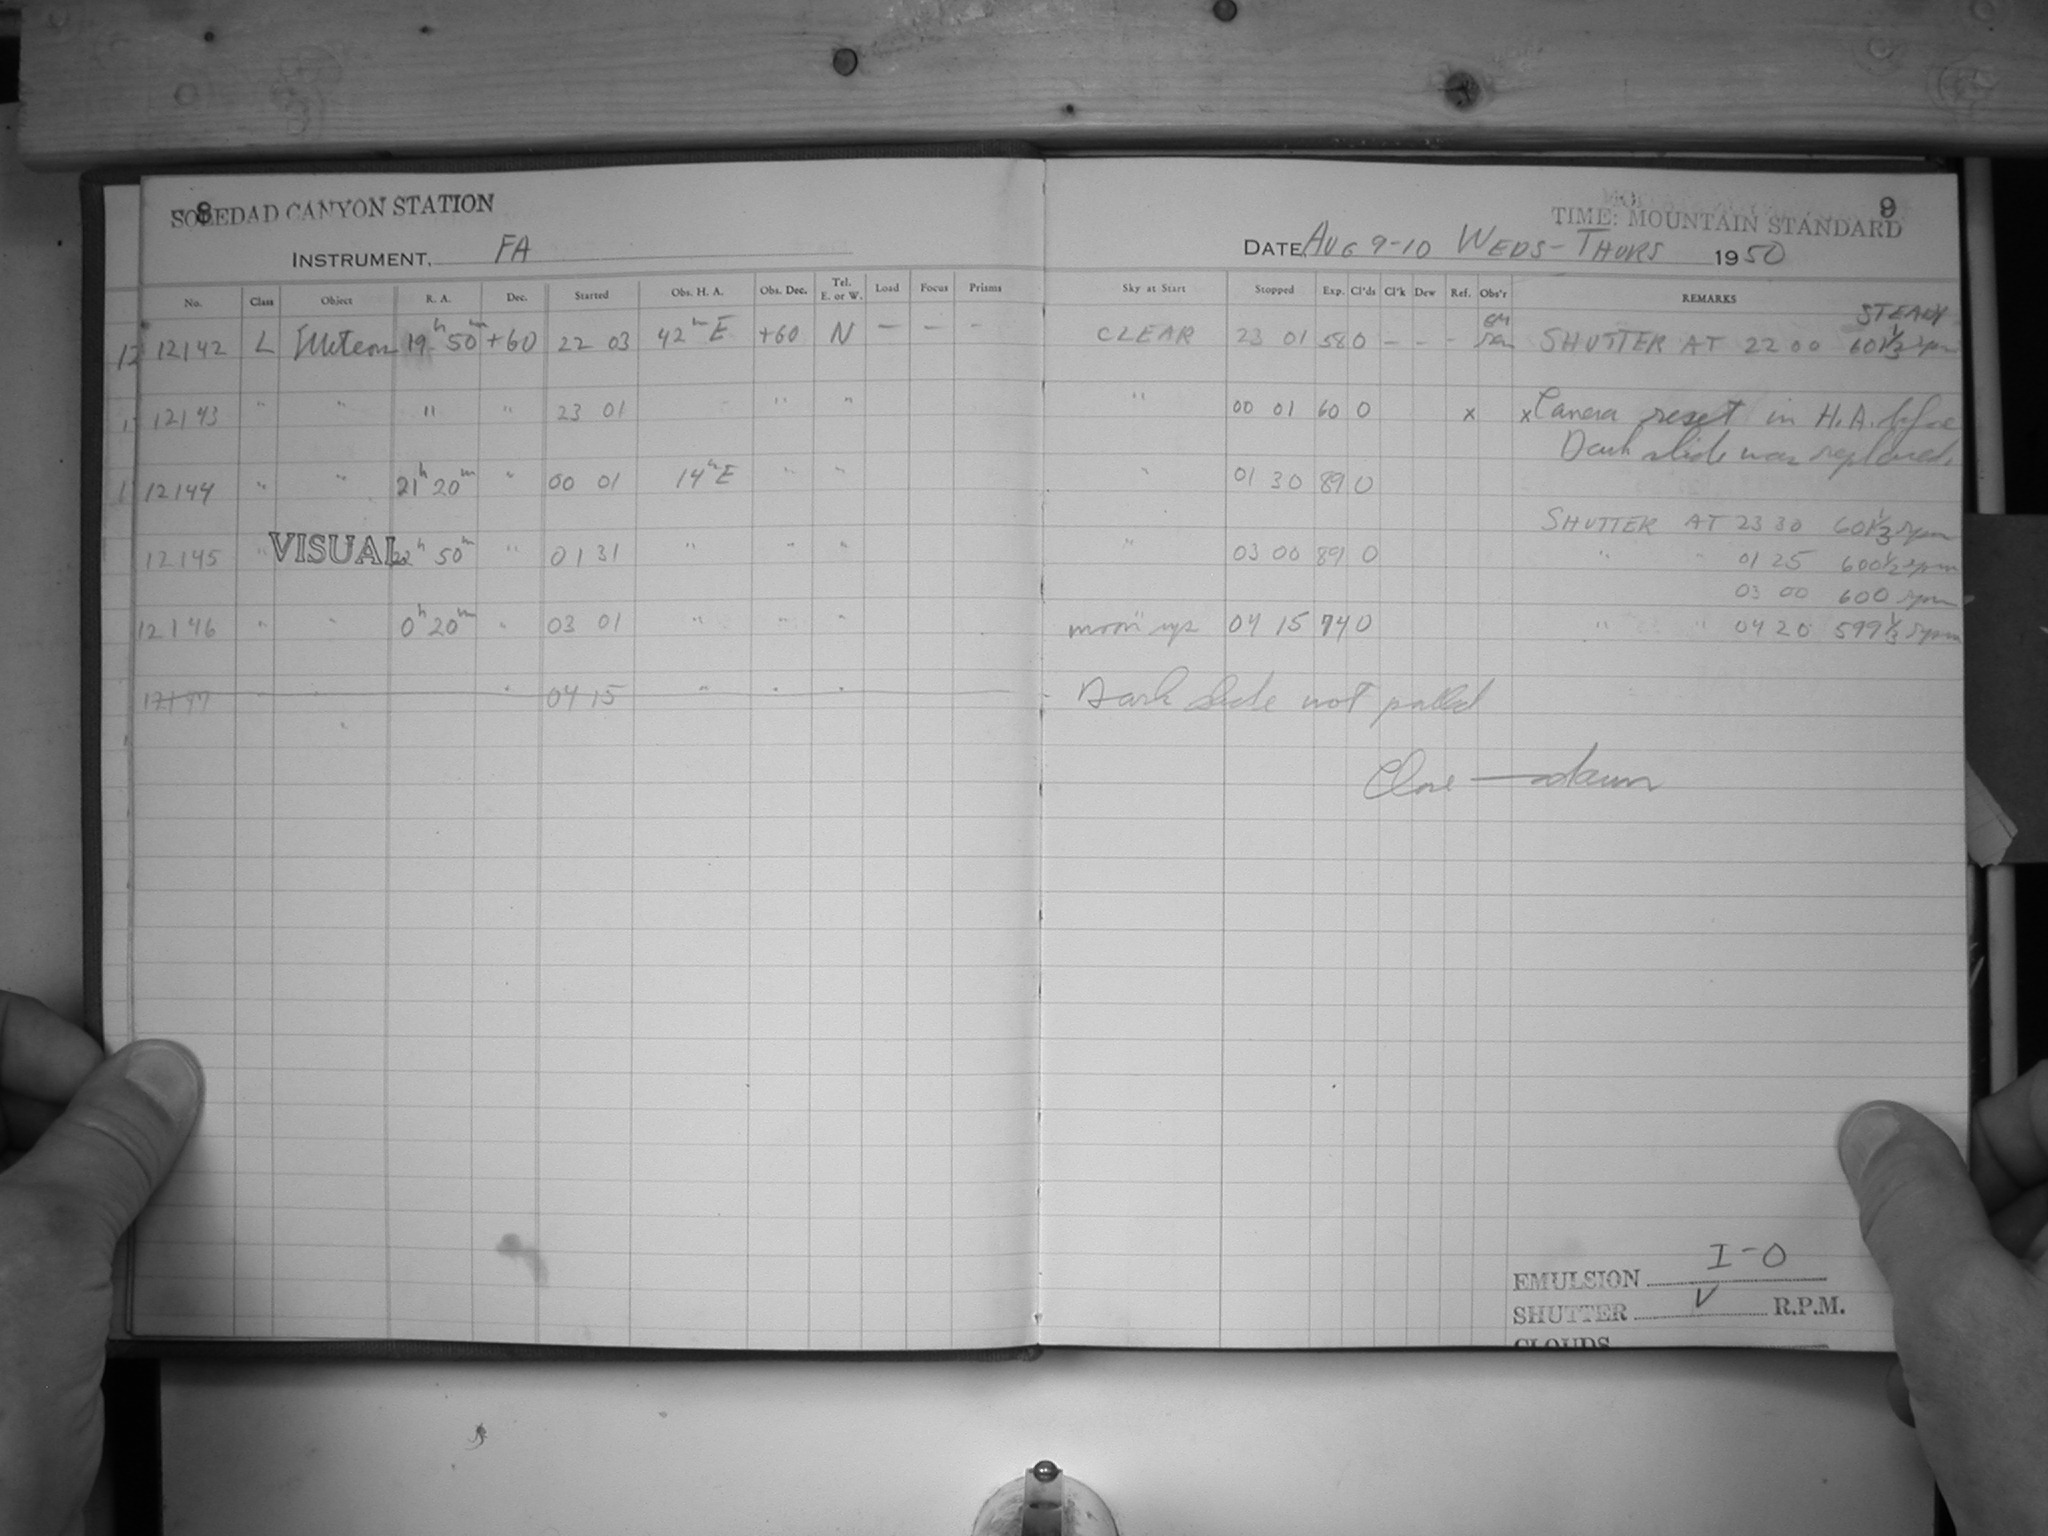 8
SOLEDAD CANYON STATION
INSTRUMENT. FA
No. Class Object R. A. Dec. Started Obs. H. A. Obs. Dec. Tel. E. or W. Load Focus Prisms
12142 L Meteors 19h 50m +60 22 03 42m E +60 N — — -
12143 " " " " 23 01 " "
12144 " " 21h 20m " 00 01 14m E " "
12145 " VISUAL 22h 50m " 01 31 " " "
12146 " " 0h 20m " 03 01 " " "
12147 " " " 04 15 " " "
"
9
TIME: MOUNTAIN STANDARD
DATE, AUG 9-10 WEDS-THURS 1950
Sky at Start Stopped Exp. Cl'ds Cl'k Dew Ref. Obs'r REMARKS
STEADY
CLEAR 23 01 58 0 - - - SHUTTER AT 22 00 601⅓ rpm
" 00 01 60 0 x xCamera reset in H.A. before
Dark slide was replaced.
" 01 30 89 0
SHUTTER AT 23 30 601⅓ rpm
" 03 00 89 0 " " 01 25 600½ rpm
03 00 600 rpm
moon up 04 15 74 0 " " 04 20 599⅓ rpm
Dark slide not pulled
Close — dawn
EMULSION I-O
SHUTTER V R.P.M.
CLOUDS